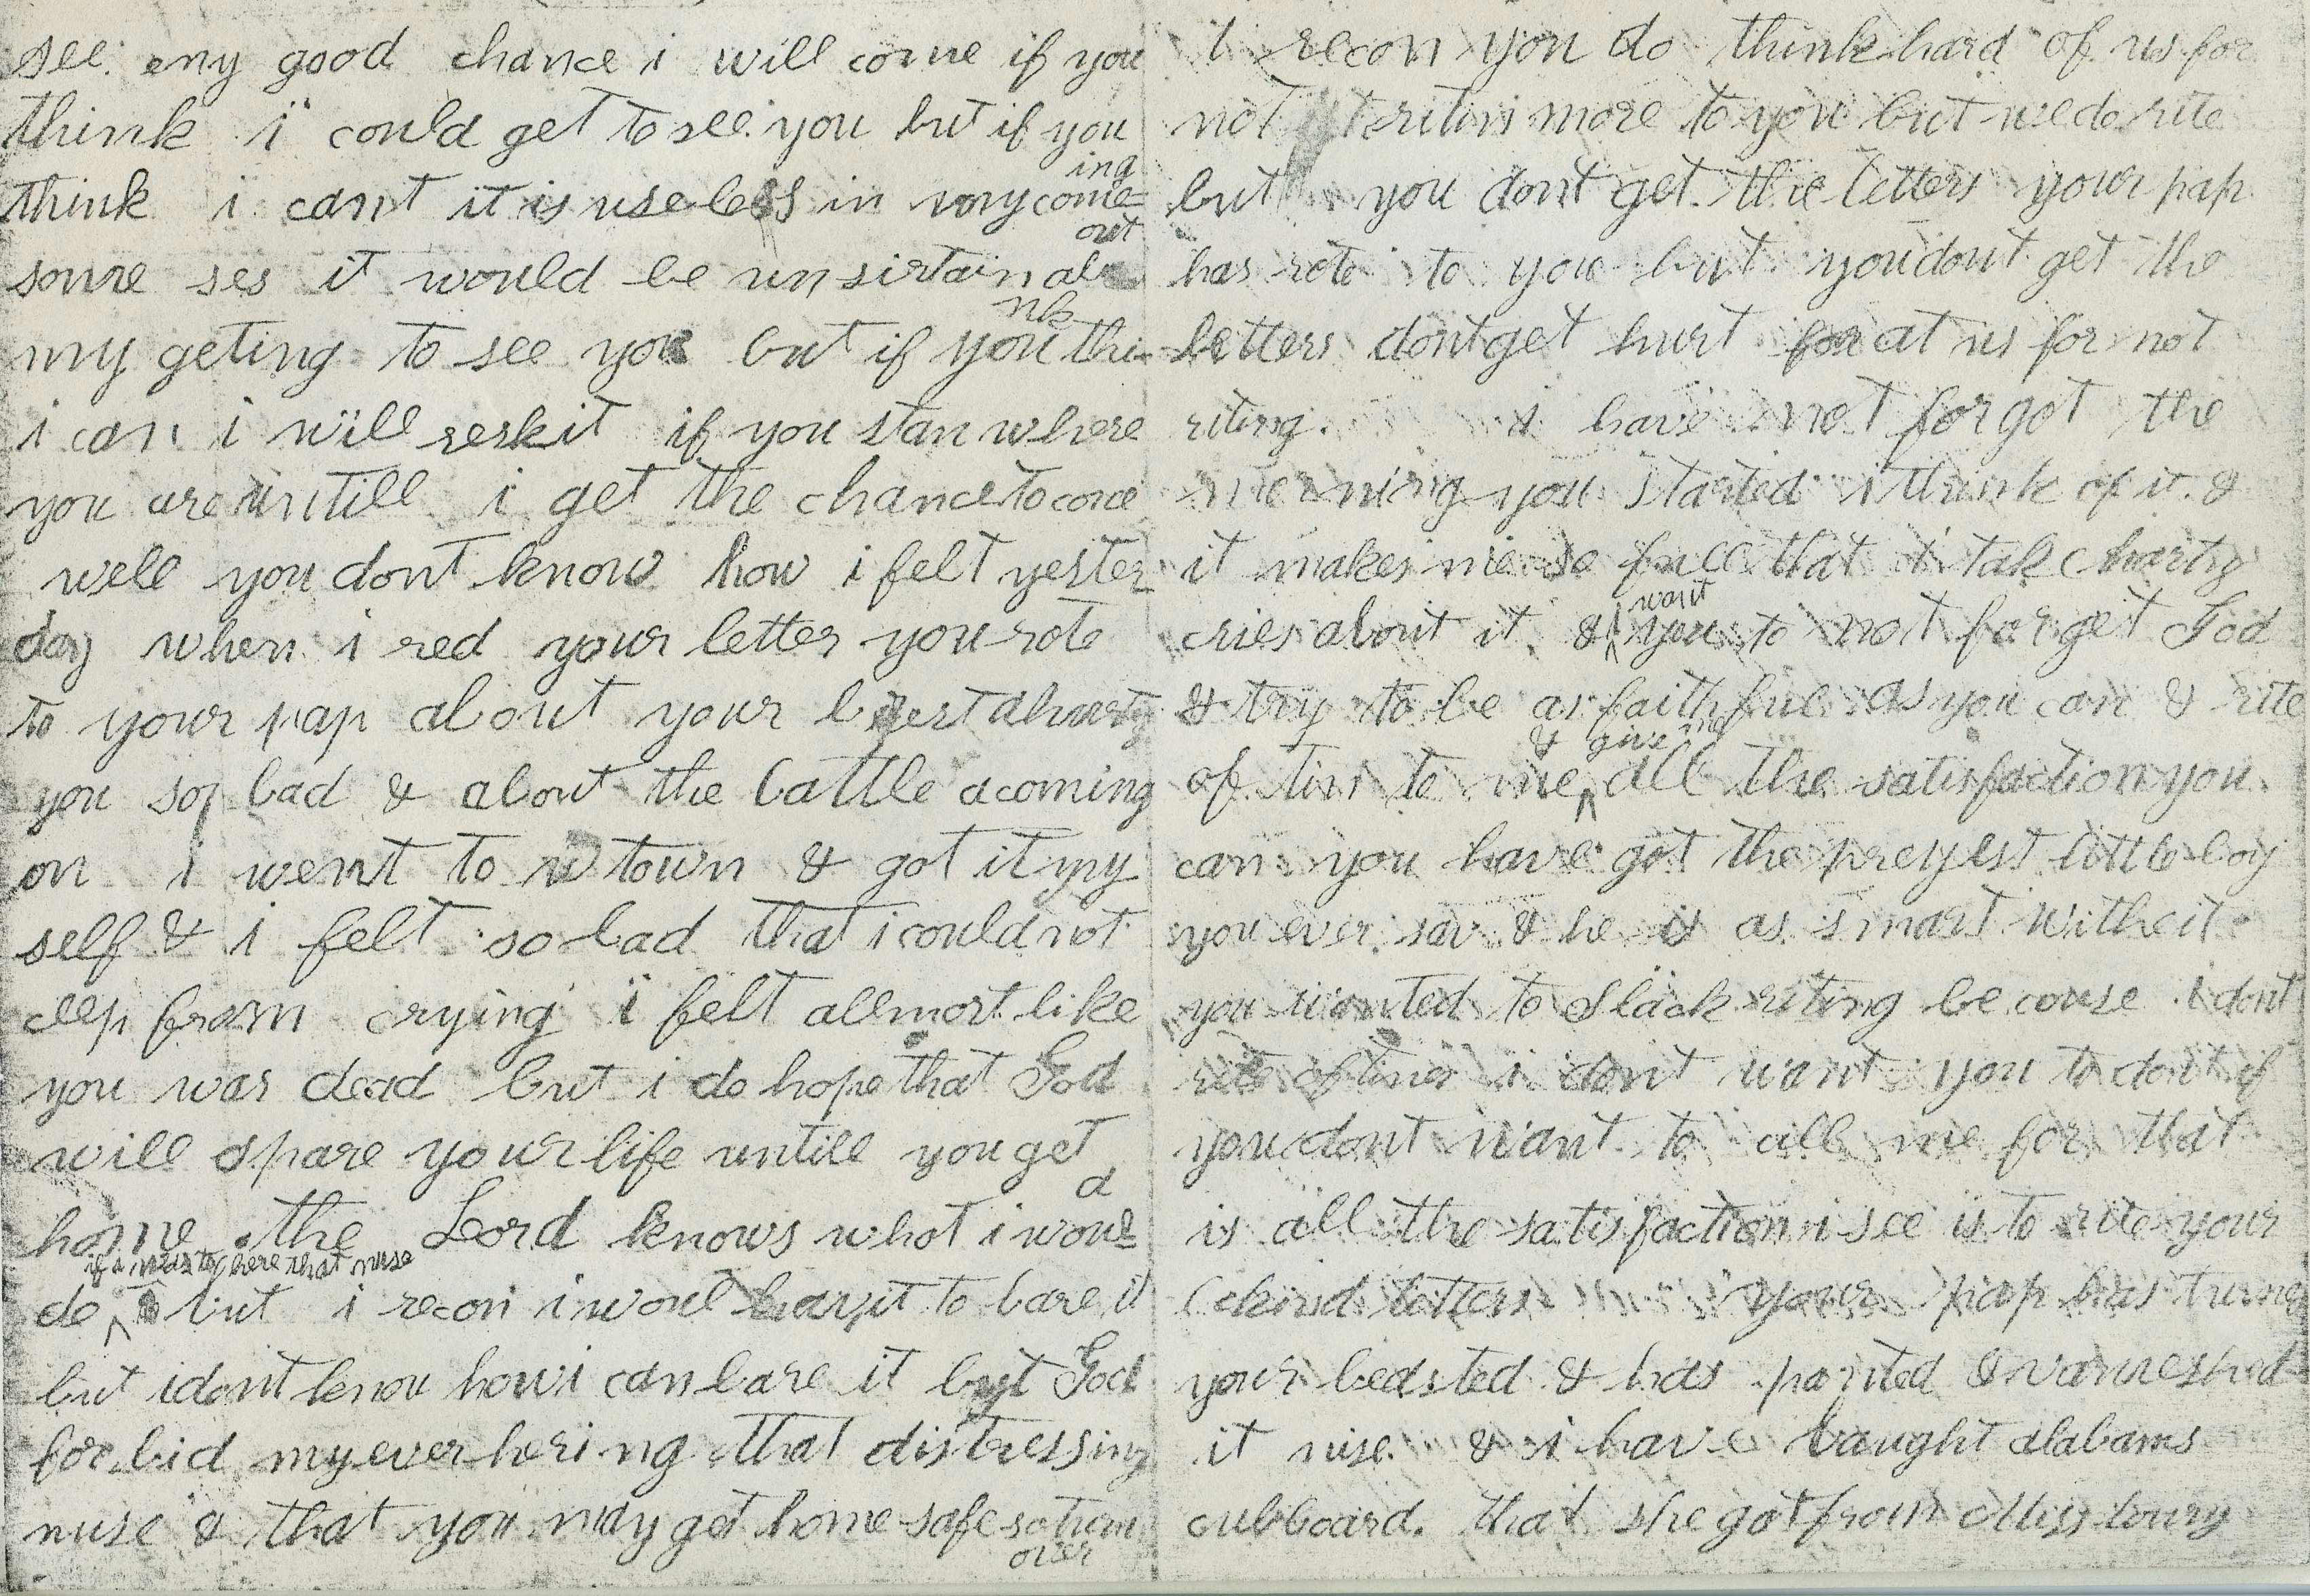 see eny good chance i will come if you
think i could get to see you but if you
think i cant it is useless in my comeing
some ses it would be unsirtain about
my geting to see you but if you think
i can i will resk it if you stan where
you are untill i get the chance to come
well you dont know how i felt yester
day when i red your letter you rote
to your pap about your brest ahurting
you so bad & about the battle acoming
on i went to town & got it my
self & i felt so bad that i could not
ceep from crying i felt allmost like
you was dead but i do hope that God
will spare your life untill you get
home the Lord knows what i would
do if i was to here that nuse but i recon i woul hav it to bare it
but i dont know how i can bare it but God
forbid my ever hering that distressing
nuse & that you may get home safe so turn
over
i recon you do think hard of us for
not riten more to you but we do rite
but you dont get the letters your pap
has rote to you but you dont get the
letters dont get hurt at us for not
riting. i have not forgot the
morning you started i think of it &
it makes me so full that i tak harty
cries about it & i want you to not forget God
& try to be as faithful as you can & rite
of tin to me & give me all the satisfaction you
can you have got the preyest little boy
you ever sav & he is as smart with it
you wanted to slack riting be couse i dont
rite oftiner i dont want you to do it if
you dont want to cill me for that
is all the satisfaction i see is to rite your
kind letters your pap has turned
your bedsted & has panted & varneshed
it nise & i have baught alabams
cubboard. that she got from Miss Loury